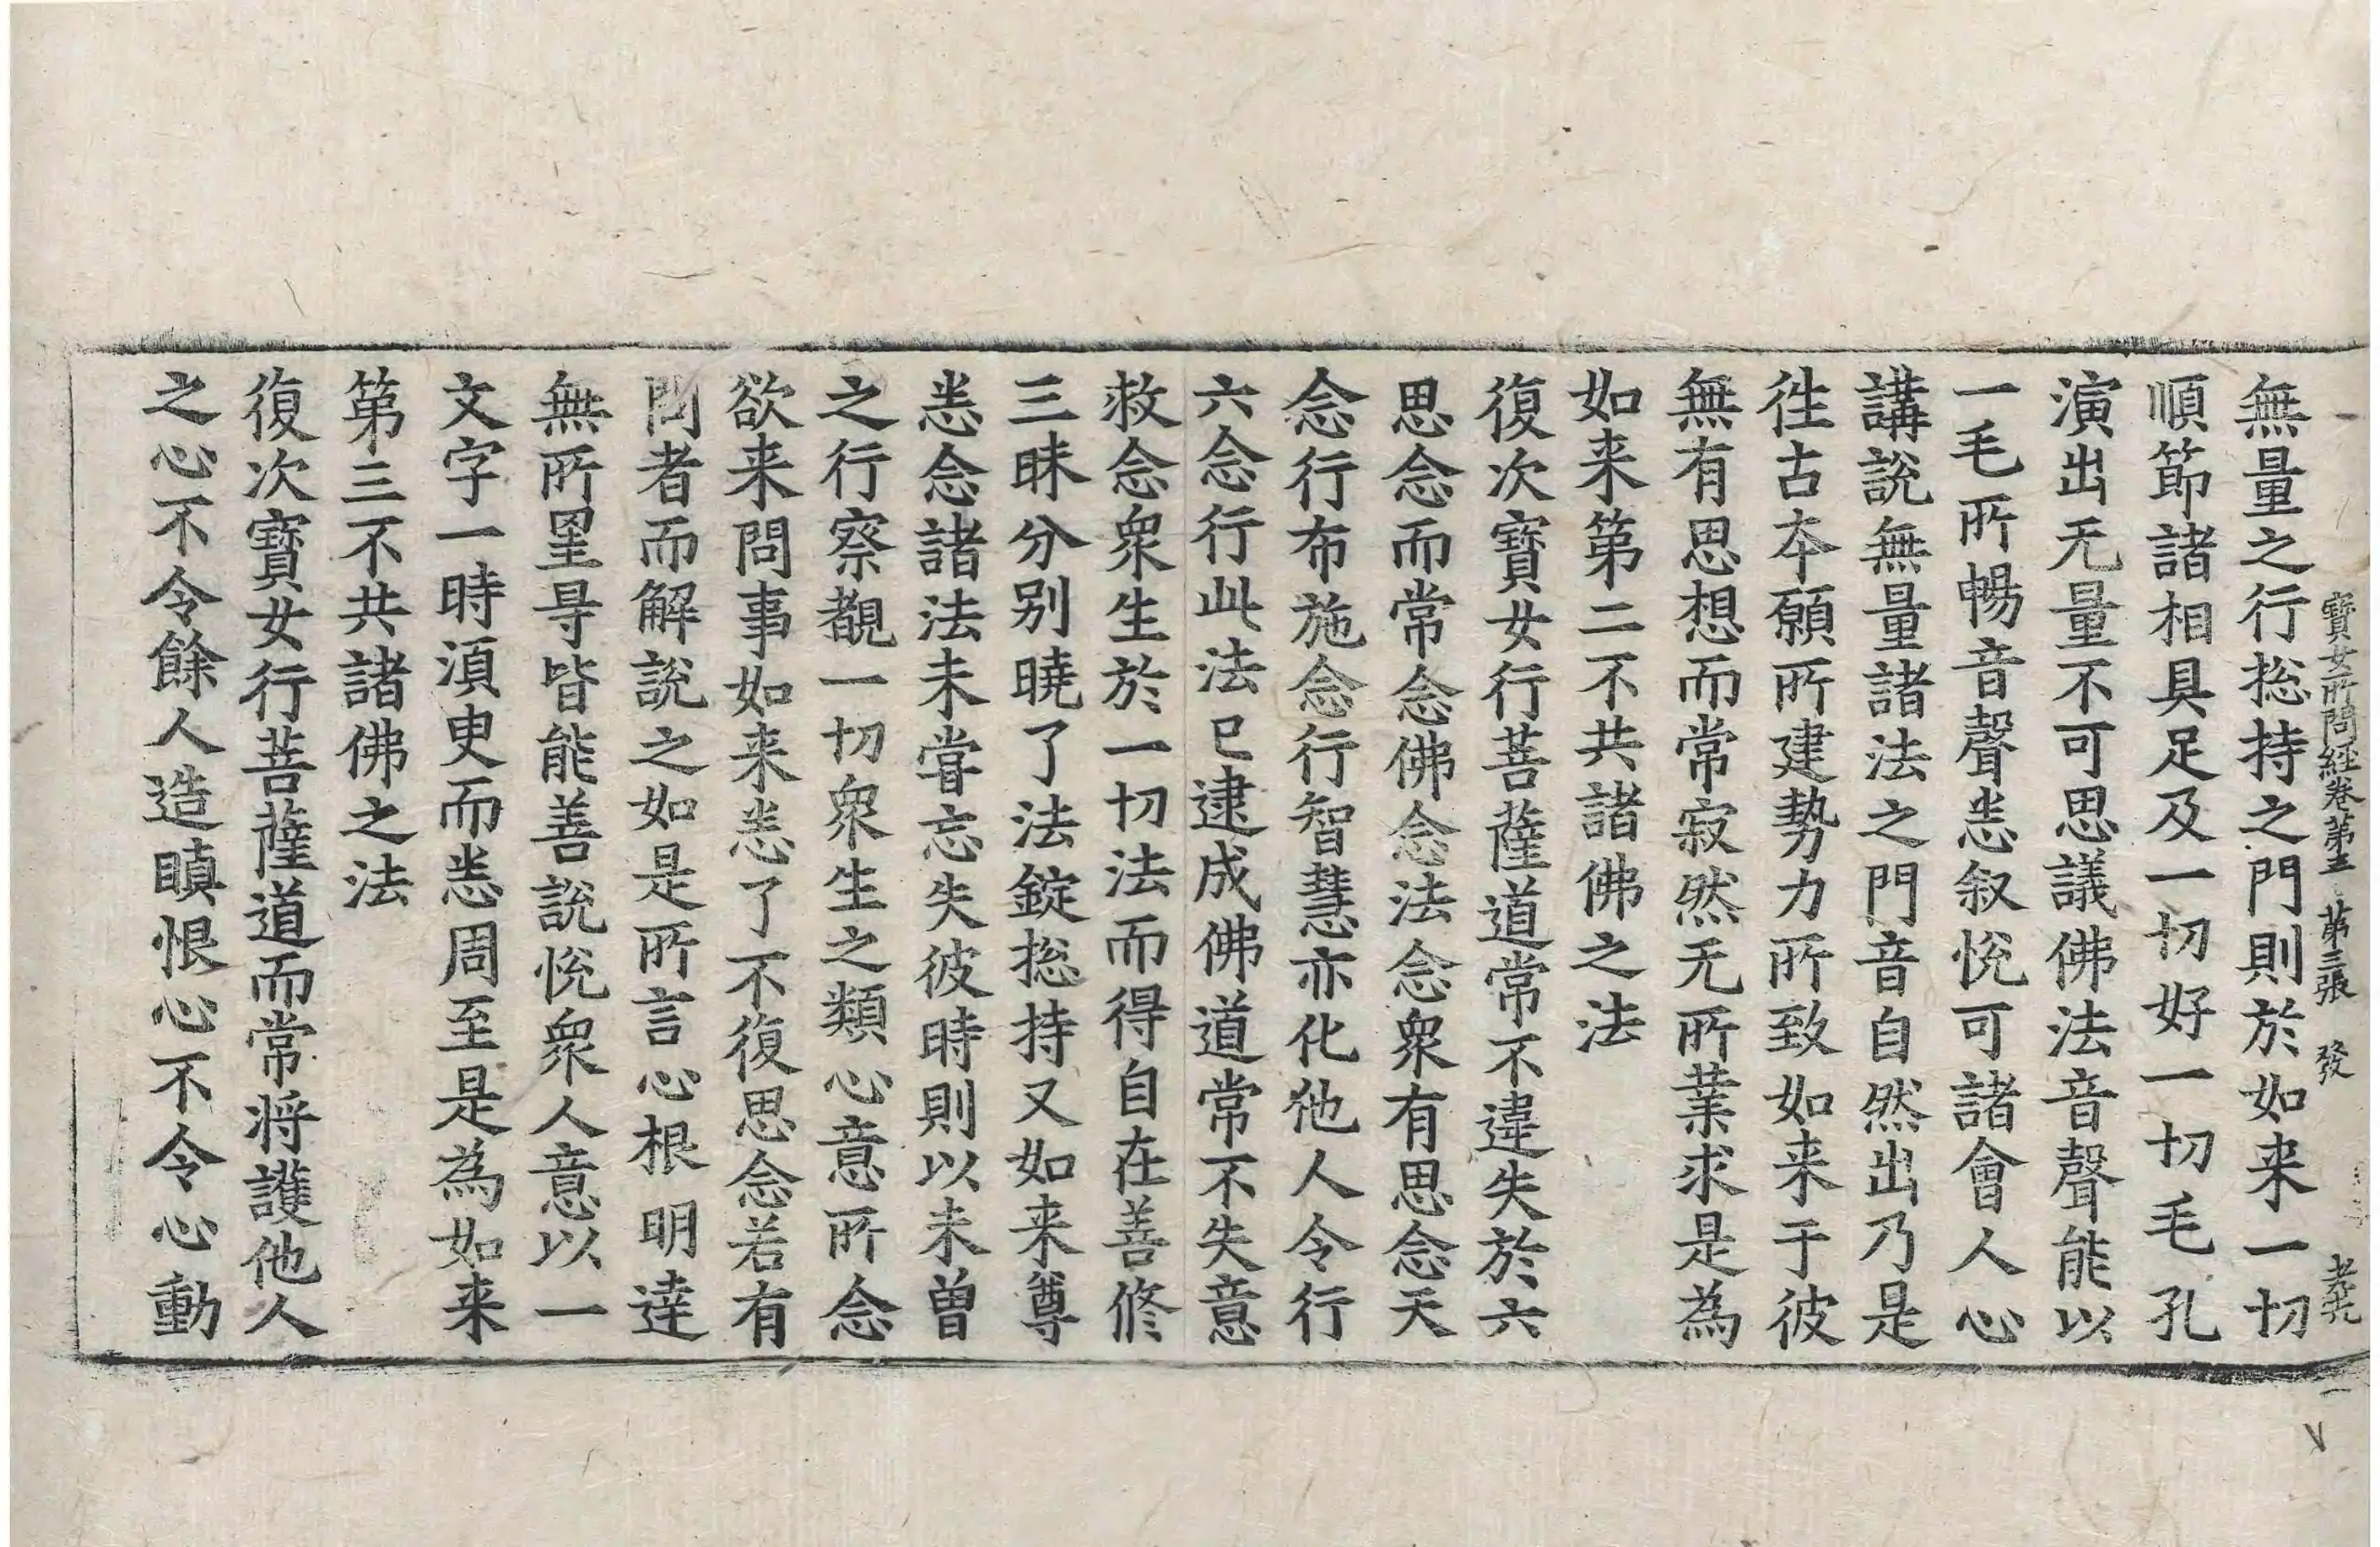 寶女所問經卷第三 第三張 發
無量之行捴持之門則於如来一切
順節諸相具足及一切好一切毛孔
演出无量不可思議佛法音聲能以
一毛所暢音聲悉叙悅可諸會人心
講說無量諸法之門音自然出乃是
徃古本願所建勢力所致如来于彼
無有思想而常寂然无所業求是為
如来第二不共諸佛之法
復次寶女行菩薩道常不違失於六
思念而常念佛念法念衆有思念天
念行布施念行智慧亦化他人令行
六念行此法已逮成佛道常不失意
救念衆生於一切法而得自在善修
三昧分別曉了法錠捴持又如来尊
悉念諸法未甞忘失彼時則以未曽
之行察覩一切衆生之類心意所念
欲来問事如来悉了不復思念若有
問者而解說之如是所言心根明達
無所罣㝵皆能善說悅衆人意以一
文字一時湏臾而悉周至是為如来
第三不共諸佛之法
復次寶女行菩薩道而常將護他人
之心不令餘人造瞋恨心不令心動